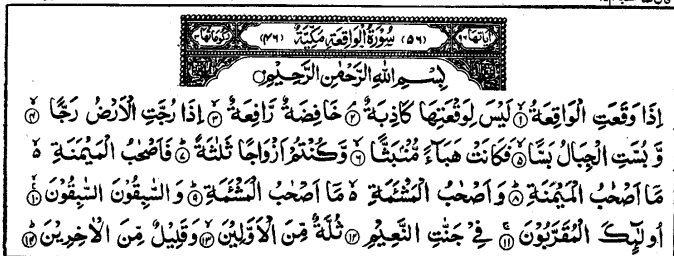 اٰیاتھا ۹۶ (۵۶) سُوْرَۃُ الْوَاقِعَۃِ مَکِّیَّۃٌ (۴۶) رکوعاتھا ۳
بِسْمِ اللّٰہِ الرَّحْمٰنِ الرَّحِیْمِ
اِذَا وَقَعَتِ الْوَاقِعَۃُ ۙ﴿۱﴾ لَیْسَ لِوَقْعَتِہَا کَاذِبَۃٌ ۘ﴿۲﴾ خَافِضَۃٌ رَّافِعَۃٌ ۙ﴿۳﴾ اِذَا رُجَّتِ الْاَرْضُ رَجًّا ۙ﴿۴﴾
وَّ بُسَّتِ الْجِبَالُ بَسًّا ۙ﴿۵﴾ فَکَانَتْ ہَبَآءً مُّنْۢبَثًّا ۙ﴿۶﴾ وَّ کُنْتُمْ اَزْوَاجًا ثَلٰثَۃً ؕ﴿۷﴾ فَاَصْحٰبُ الْمَیْمَنَۃِ ۬ۙ
مَاۤ اَصْحٰبُ الْمَیْمَنَۃِ ؕ﴿۸﴾ وَ اَصْحٰبُ الْمَشْـَٔمَۃِ ۬ۙ مَاۤ اَصْحٰبُ الْمَشْـَٔمَۃِ ؕ﴿۹﴾ وَ السّٰبِقُوْنَ السّٰبِقُوْنَ ﴿ۚۙ۱۰﴾
اُولٰٓئِکَ الْمُقَرَّبُوْنَ ﴿ۚ۱۱﴾ فِیْ جَنّٰتِ النَّعِیْمِ ﴿۱۲﴾ ثُلَّۃٌ مِّنَ الْاَوَّلِیْنَ ﴿ۙ۱۳﴾ وَ قَلِیْلٌ مِّنَ الْاٰخِرِیْنَ ﴿ؕ۱۴﴾